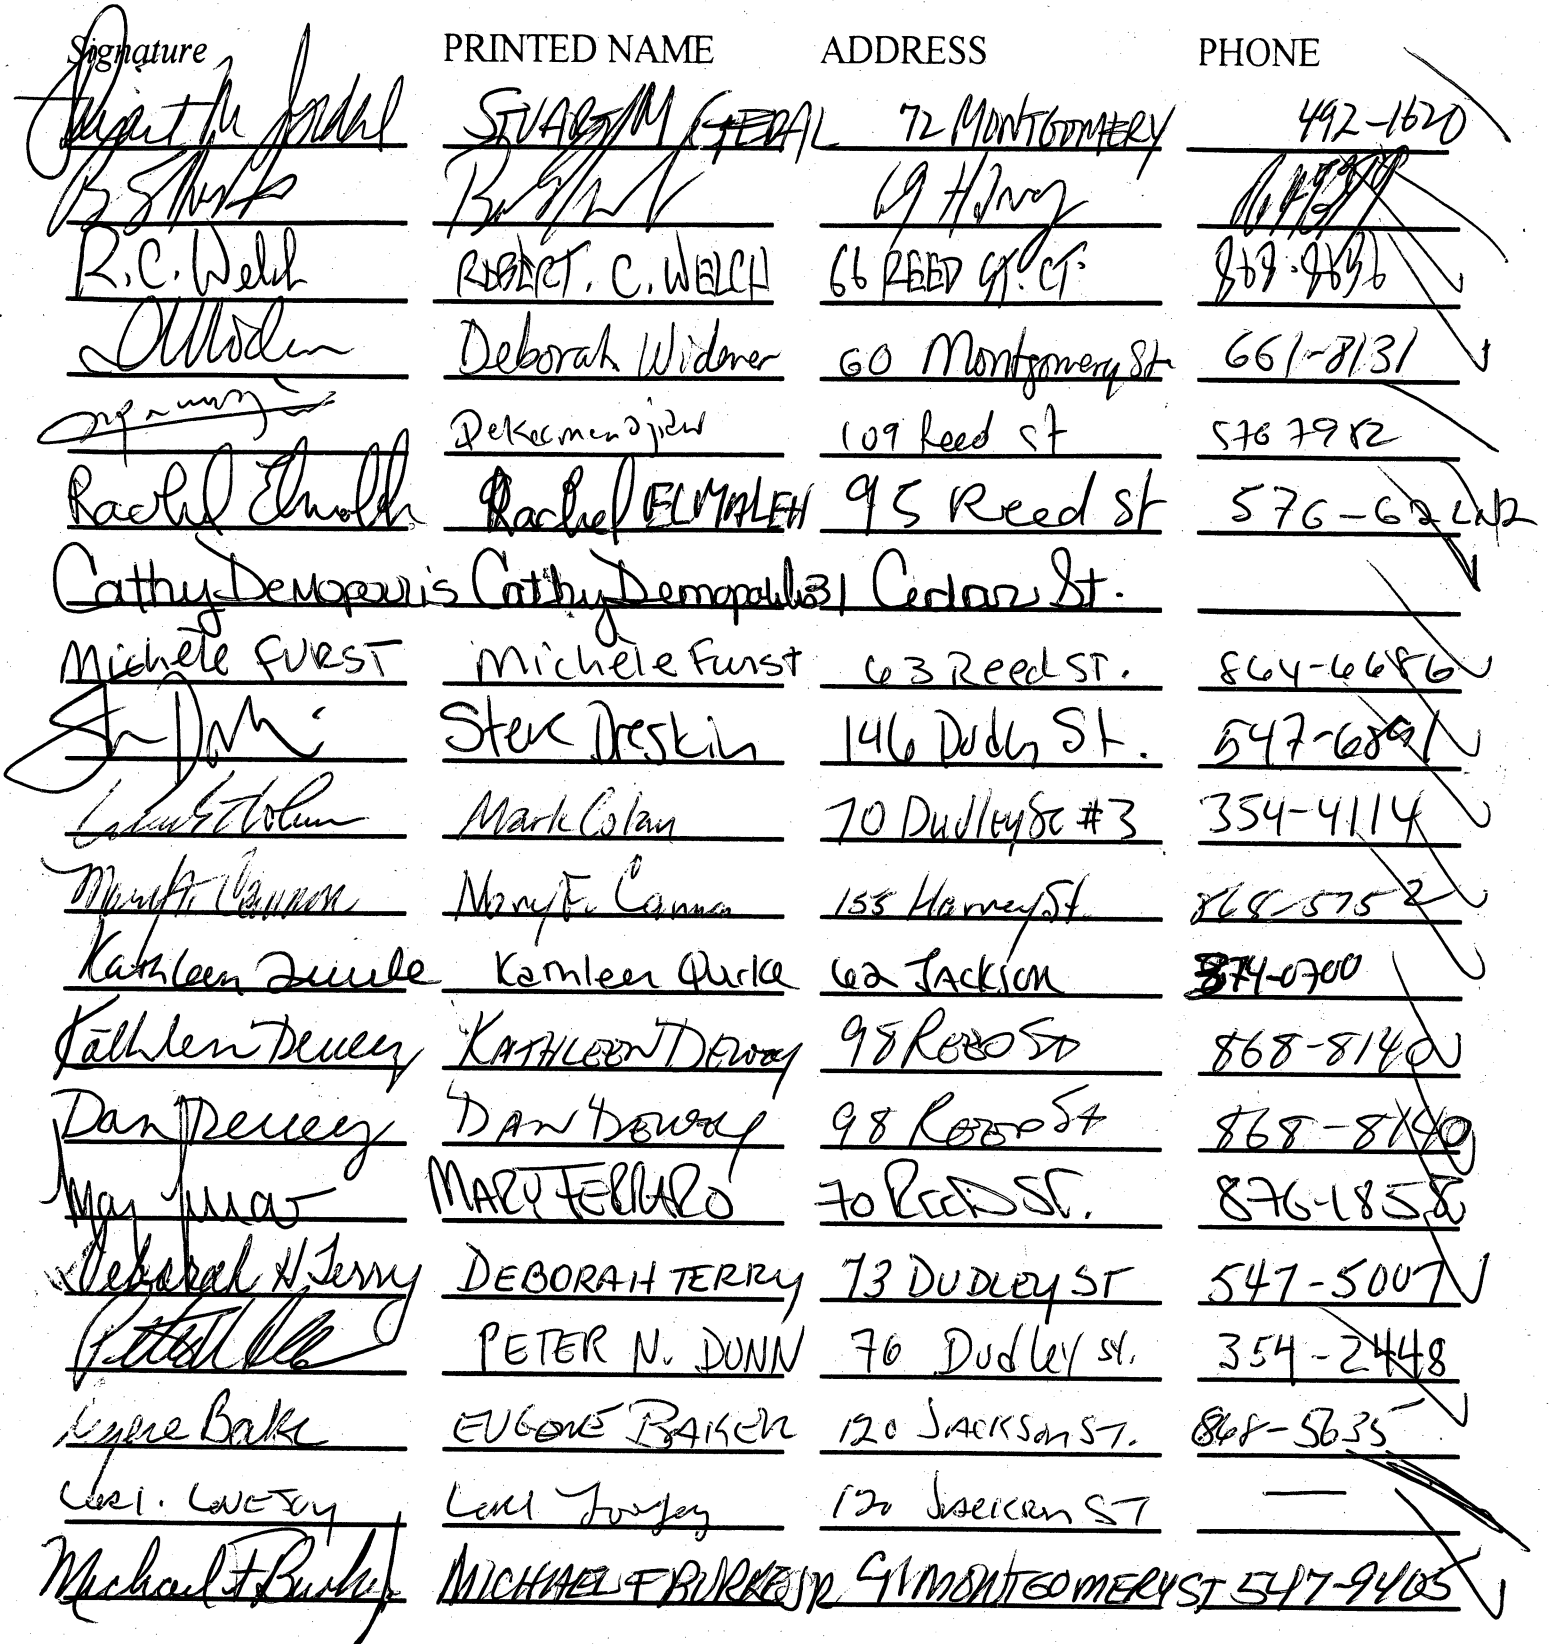 Signature PRINTED NAME ADDRESS PHONE
STUART M 72 MONTGOMERY 492-1620
69
R.C. Welch ROBERT. C. WELCH 66 REED ST. CT. 868-8696
Deborah Widener 60 Montgomery St. 661-8131
109 Reed St 576 7982
Rachel Elmaleh Rachel ELMALEH 95 Reed St 576-62
Cathy Demopoulis Cathy Demopoulis 31 Cedar St.
Michèle FURST Michèle Furst 63 Reed ST. 864-6686
Steve Dreskin 146 Dudley St. 547-6891
Mark Colan 70 Dudley St #3 354-4114
Mary F. Cannon 155 Harvey St. 868-5752
Kathleen Quirke Kathleen Quirke 62 JACKSON 874-0700
Kathleen Dewey KATHLEEN DEWEY 98 REED ST 868-8140
Dan Dewey DAN DEWEY 98 REED ST 868-8140
MARY FERRARO 70 REED ST. 876-1858
Deborah H Terry DEBORAH TERRY 73 DUDLEY ST 547-5007
PETER N. DUNN 76 Dudley St. 354-2448
Eugene Baker EUGENE BAKER 120 JACKSON ST. 868-5635
Lovejoy 120 JACKSON ST
Michael F Burke Jr MICHAEL F BURKE JR MONTGOMERY ST 547-9405